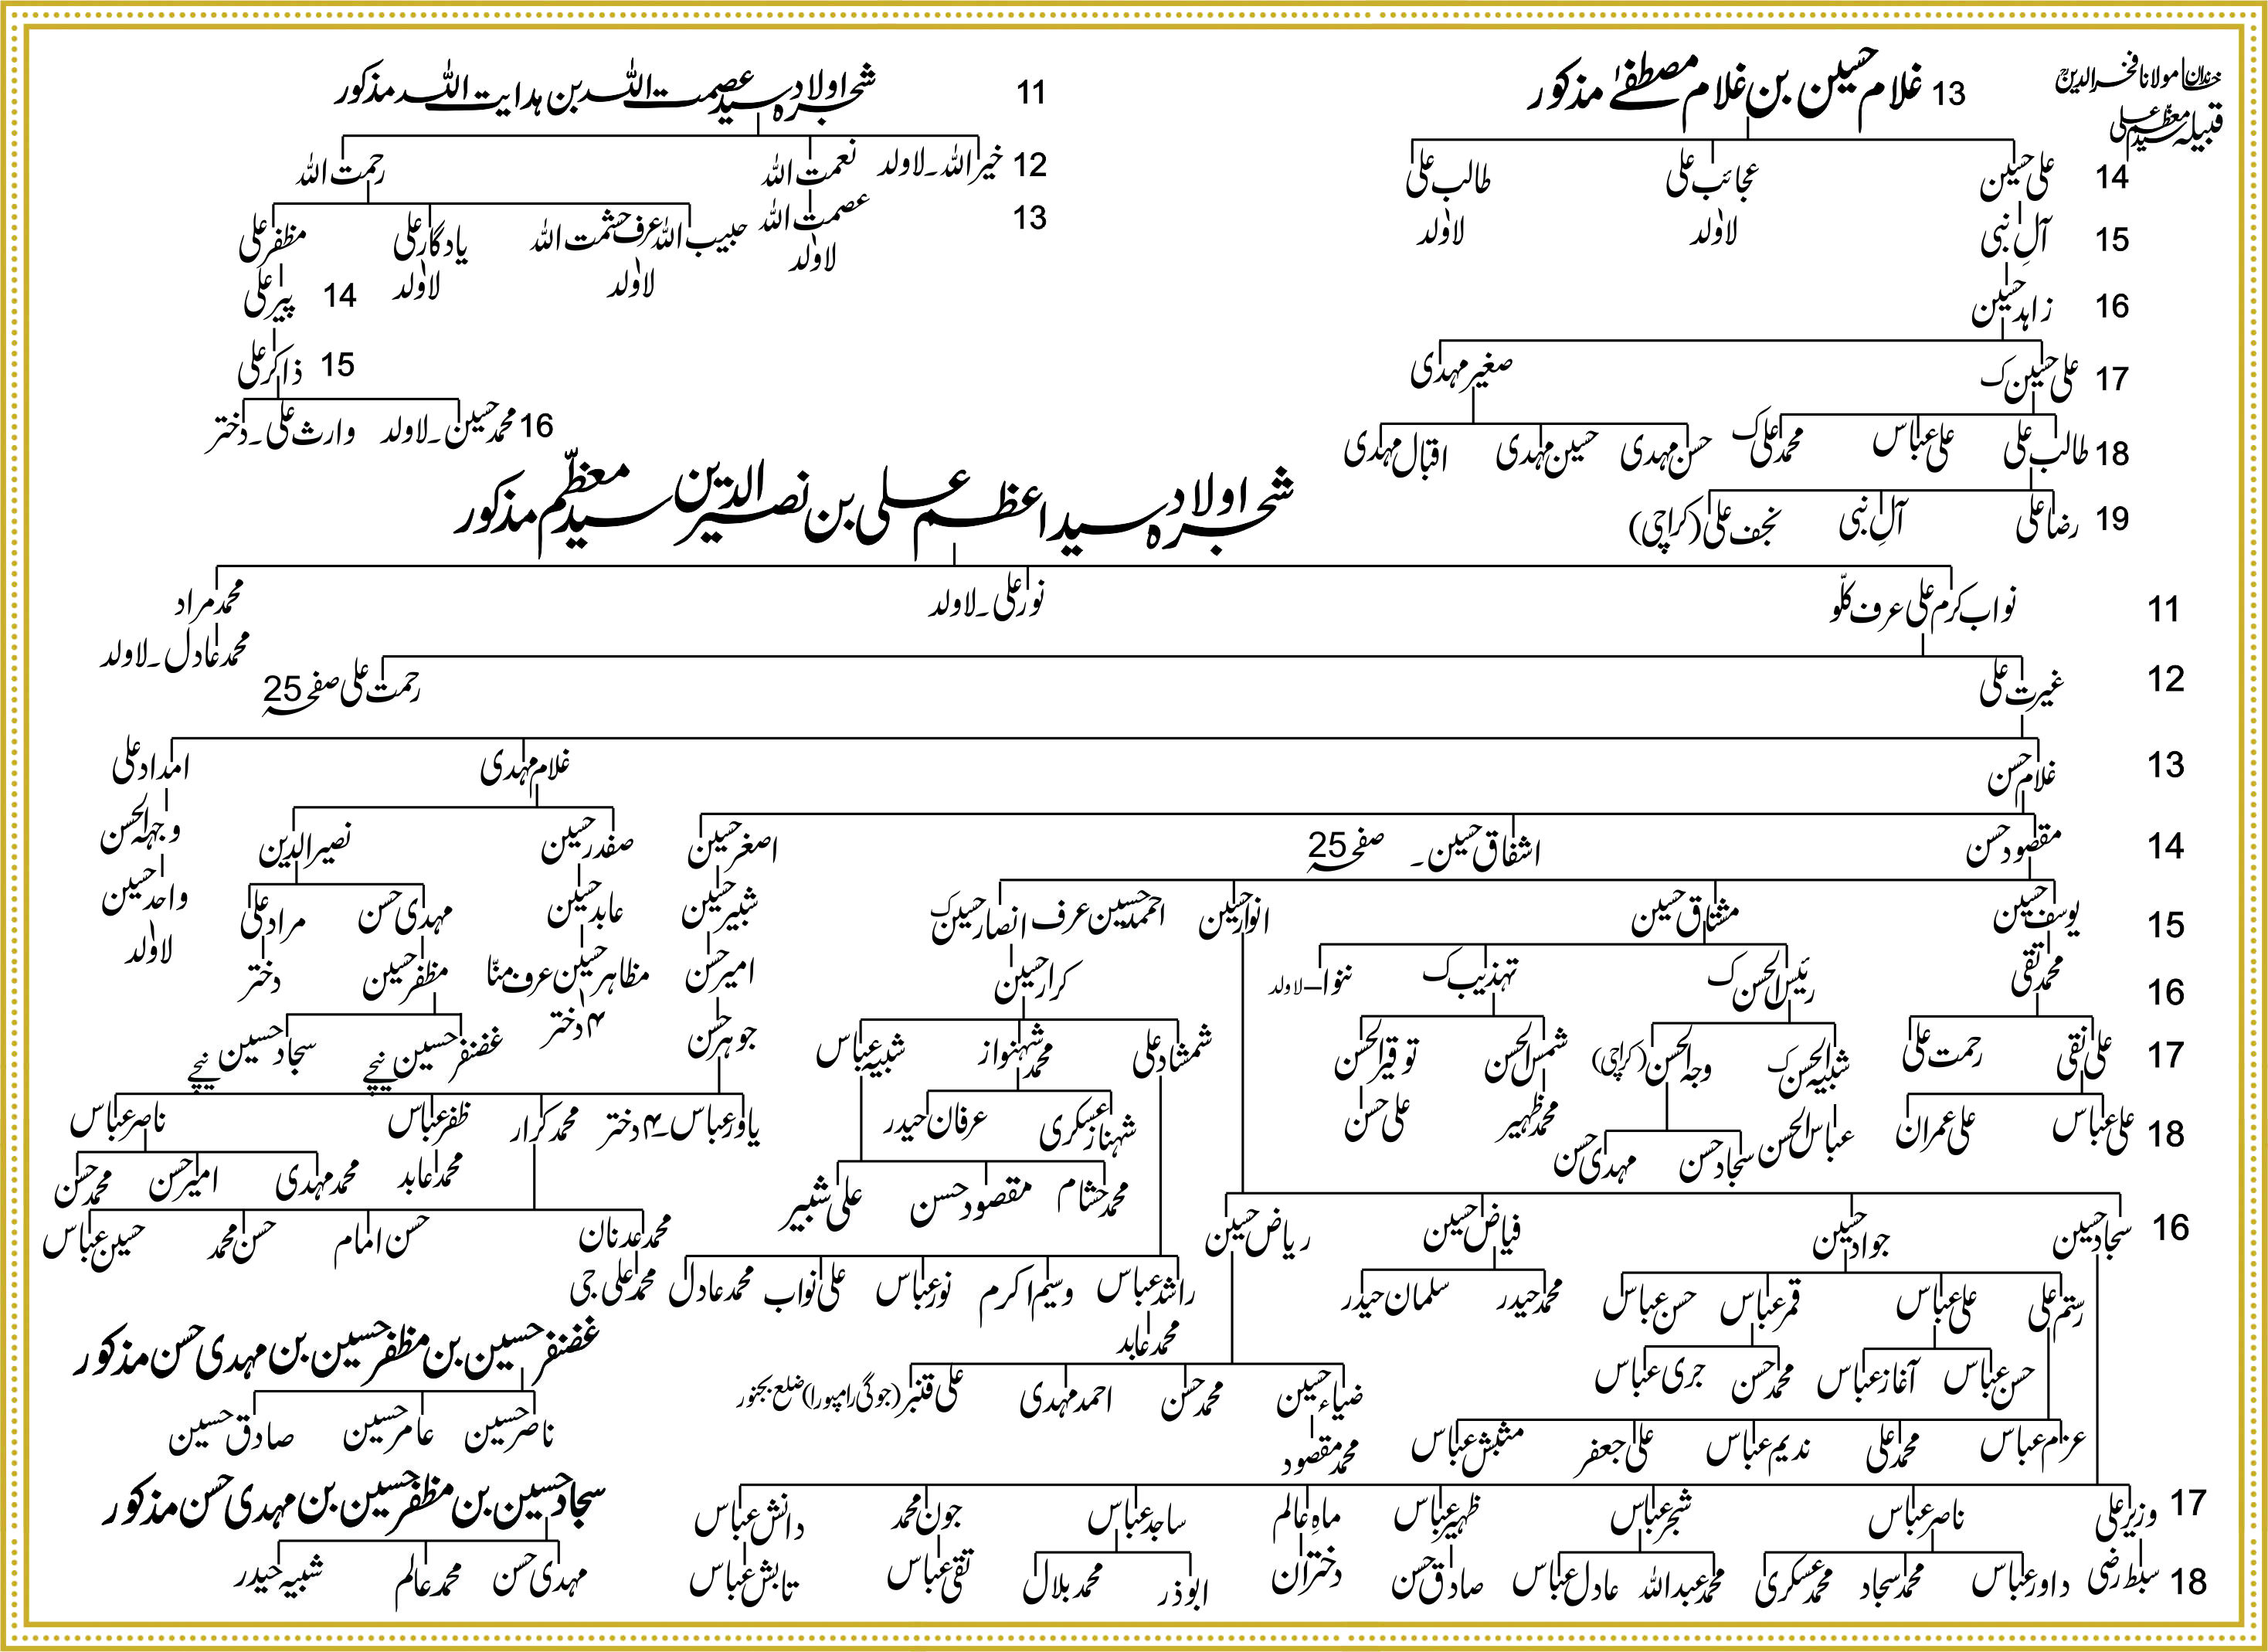 خاندان مولانا فخرالدینؒ
قبیلہ سید معظم علی
13 غلام حسین بن غلام مصطفےٰ مذکور
14 علی حسین عجائب علی طالب علی
15 آلِ نبی لاولد لاولد
16 زاہد حسین
17 علی حسین ک صغیر مہدی
18 طالب علی علی عباس محمد علی ک حسن مہدی حسین مہدی اقبال مہدی
19 رضا علی آلِ نبی نجف علی (کراچی)
11 شجرہ اولاد سید عصمت اللہ بن ہدایت اللہ مذکور
12 خیر اللہ۔لاولد نعمت اللہ رحمت اللہ
13 عصمت اللہ حبیب اللہ عرف حشمت اللہ یادگار علی مظفر علی
لاولد لاولد لاولد
14 پیر علی
15 ذاکر علی
16 محمد حسین۔لاولد وارث علی۔دختر
شجرہ اولاد سید اعظم علی بن نصیر الدین سید معظّم مذکور
11 نواب کرم علی عرف کلّو نور علی۔لاولد محمد مراد
محمد عادل۔لاولد
12 غیرت علی رحمت علی صفحہ 25
13 غلام حسن غلام مہدی امداد علی
14 مقصود حسن اشفاق حسین۔ صفحہ 25 اصغر حسین صفدر حسین نصیر الدین وجہہ الحسن
15 یوسف حسین مشتاق حسین انوار حسین احمد حسین عرف انصار حسین ک شبیر حسین عابد حسین مہدی حسن مراد علی واحد حسین
16 محمد تقی رئیس الحسن ک تہذیب ک ننوا–لاولد کرار حسین امیر حسن مظاہر حسین عرف منّا مظفر حسین دختر لاولد
۴ دختر
17 علی نقی رحمت علی شبیہ الحسن ک وجہ الحسن (کراچی) شمس الحسن توقیر الحسن شمشاد علی محمد شہنواز شبیہ عباس جوہر حسن غضنفر حسین نیچے سجاد حسین نیچے
18 علی عباس علی عمران عباس الحسن سجاد حسن مہدی حسن محمد ظہیر علی حسن شہناز عسکری عرفان حیدر یاور عباس۔۴ دختر محمد کرار ظفر عباس ناصر عباس
محمد حشام مقصود حسن علی شبیر محمد عابد محمد مہدی امیر حسن محمد حسن
16 سجاد حسین جواد حسین فیاض حسین ریاض حسین محمد عدنان حسن امام حسن محمد حسین عباس
رستم علی علی عباس قمر عباس حسن عباس محمد حیدر سلمان حیدر راشد عباس وسیم اکرم نور عباس علی نواب محمد عادل محمد علی جی
محمد عابد
حسن عباس آغاز عباس محمد حسن جری عباس ضیاء حسین محمد حسن احمد مہدی علی قنبر (جوگی رامپورا) ضلع بجنور
عزم عباس محمد علی ندیم عباس علی جعفر عباس محمد مقصود
غضنفر حسین بن مظفر حسین بن مہدی حسن مذکور
ناصر حسین عامر حسین صادق حسین
17 وزیر علی ناصر عباس شجر عباس ظہیر عباس ماہِ عالم ساجد عباس جون محمد دانش عباس
18 سبط رضی داور عباس محمد سجاد محمد عسکری محمد عبداللہ عادل عباس صادق حسن دختران ابوذر محمد بلال تقی عباس تابش عباس
سجاد حسین بن مظفر حسین بن مہدی حسن مذکور
مہدی حسن محمد عالم شبیہ حیدر